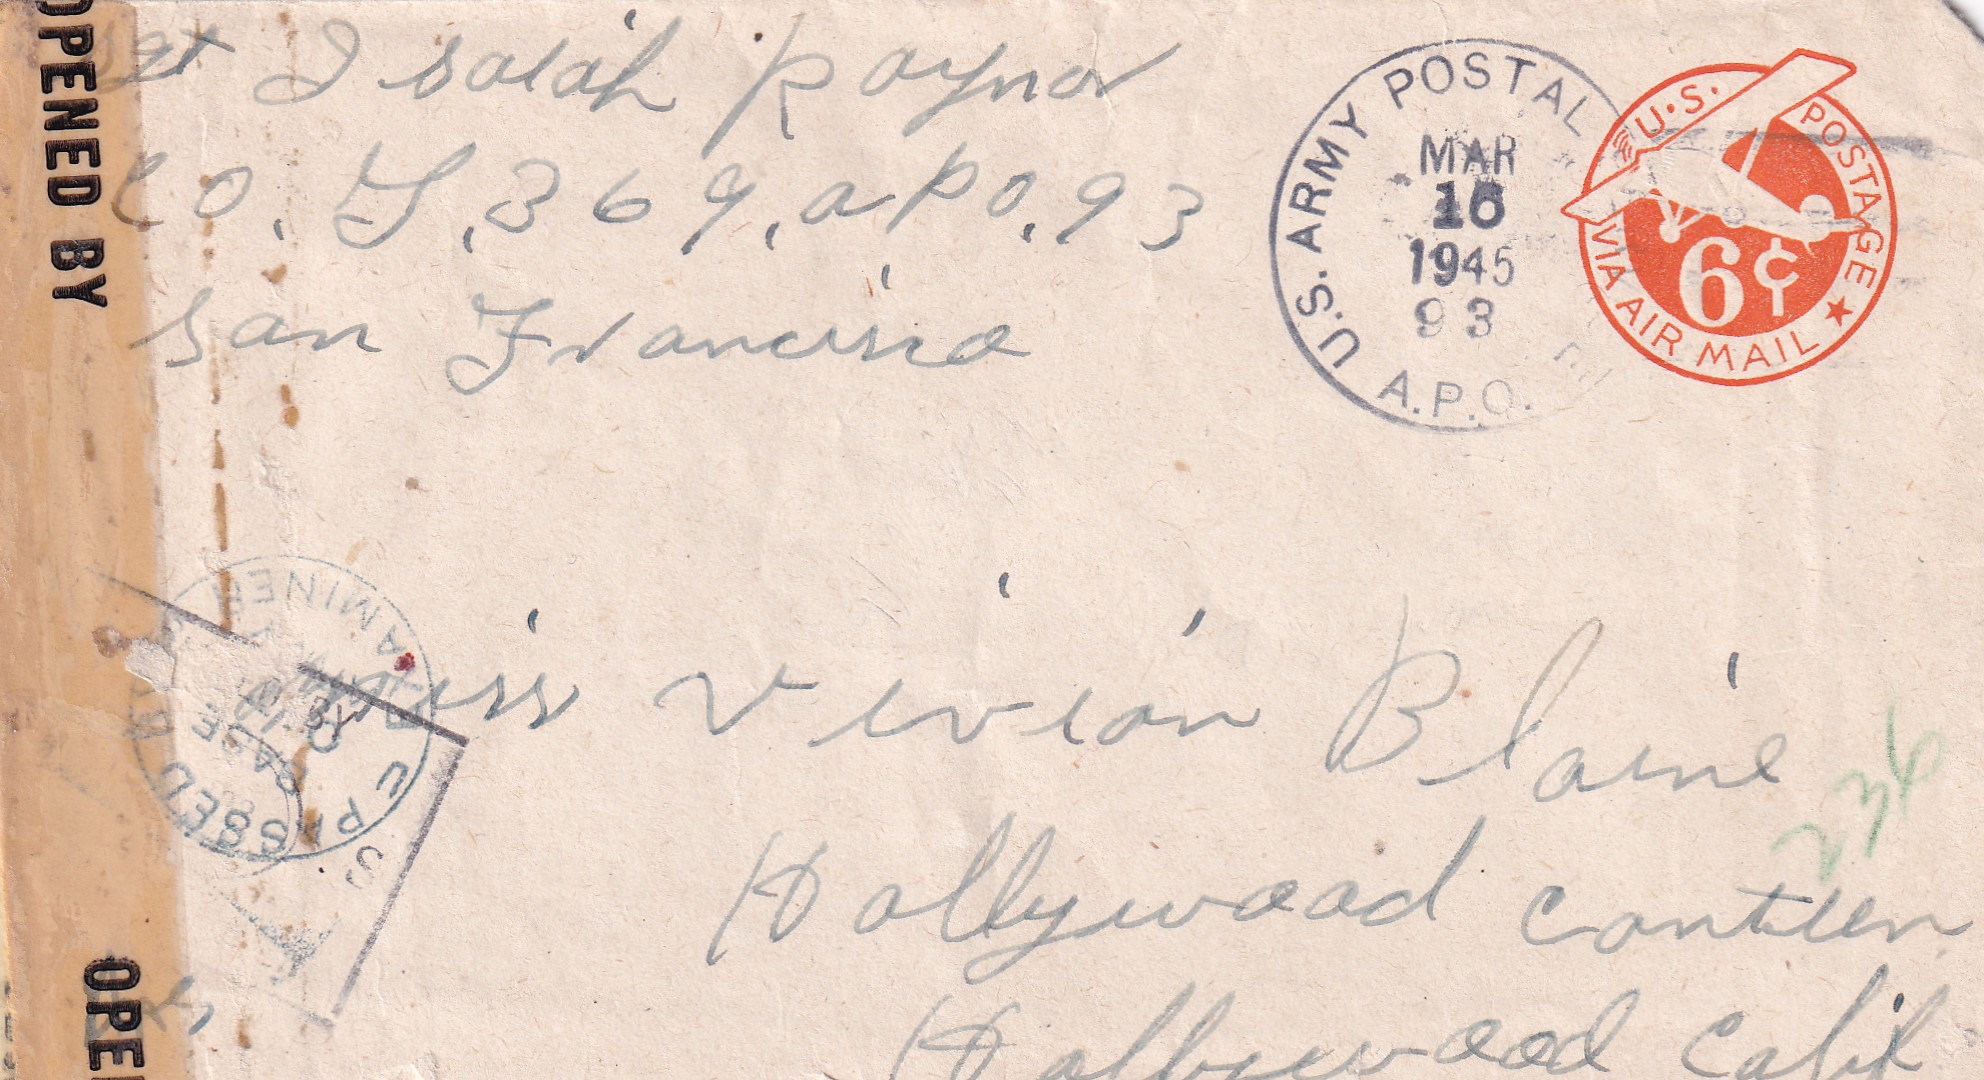 OPENED BY
Sgt Isaiah Raynor
Co. G, 369, apo. 93
San Francisco
U.S. ARMY POSTAL
MAR
16
1945
93
A.P.O.
U.S. POSTAGE
6¢
VIA AIR MAIL
PASSED
BASE
EXAMINER
S
Miss Vivian Blaine
236
Hollywood Canteen
Hollywood Calif
OPE